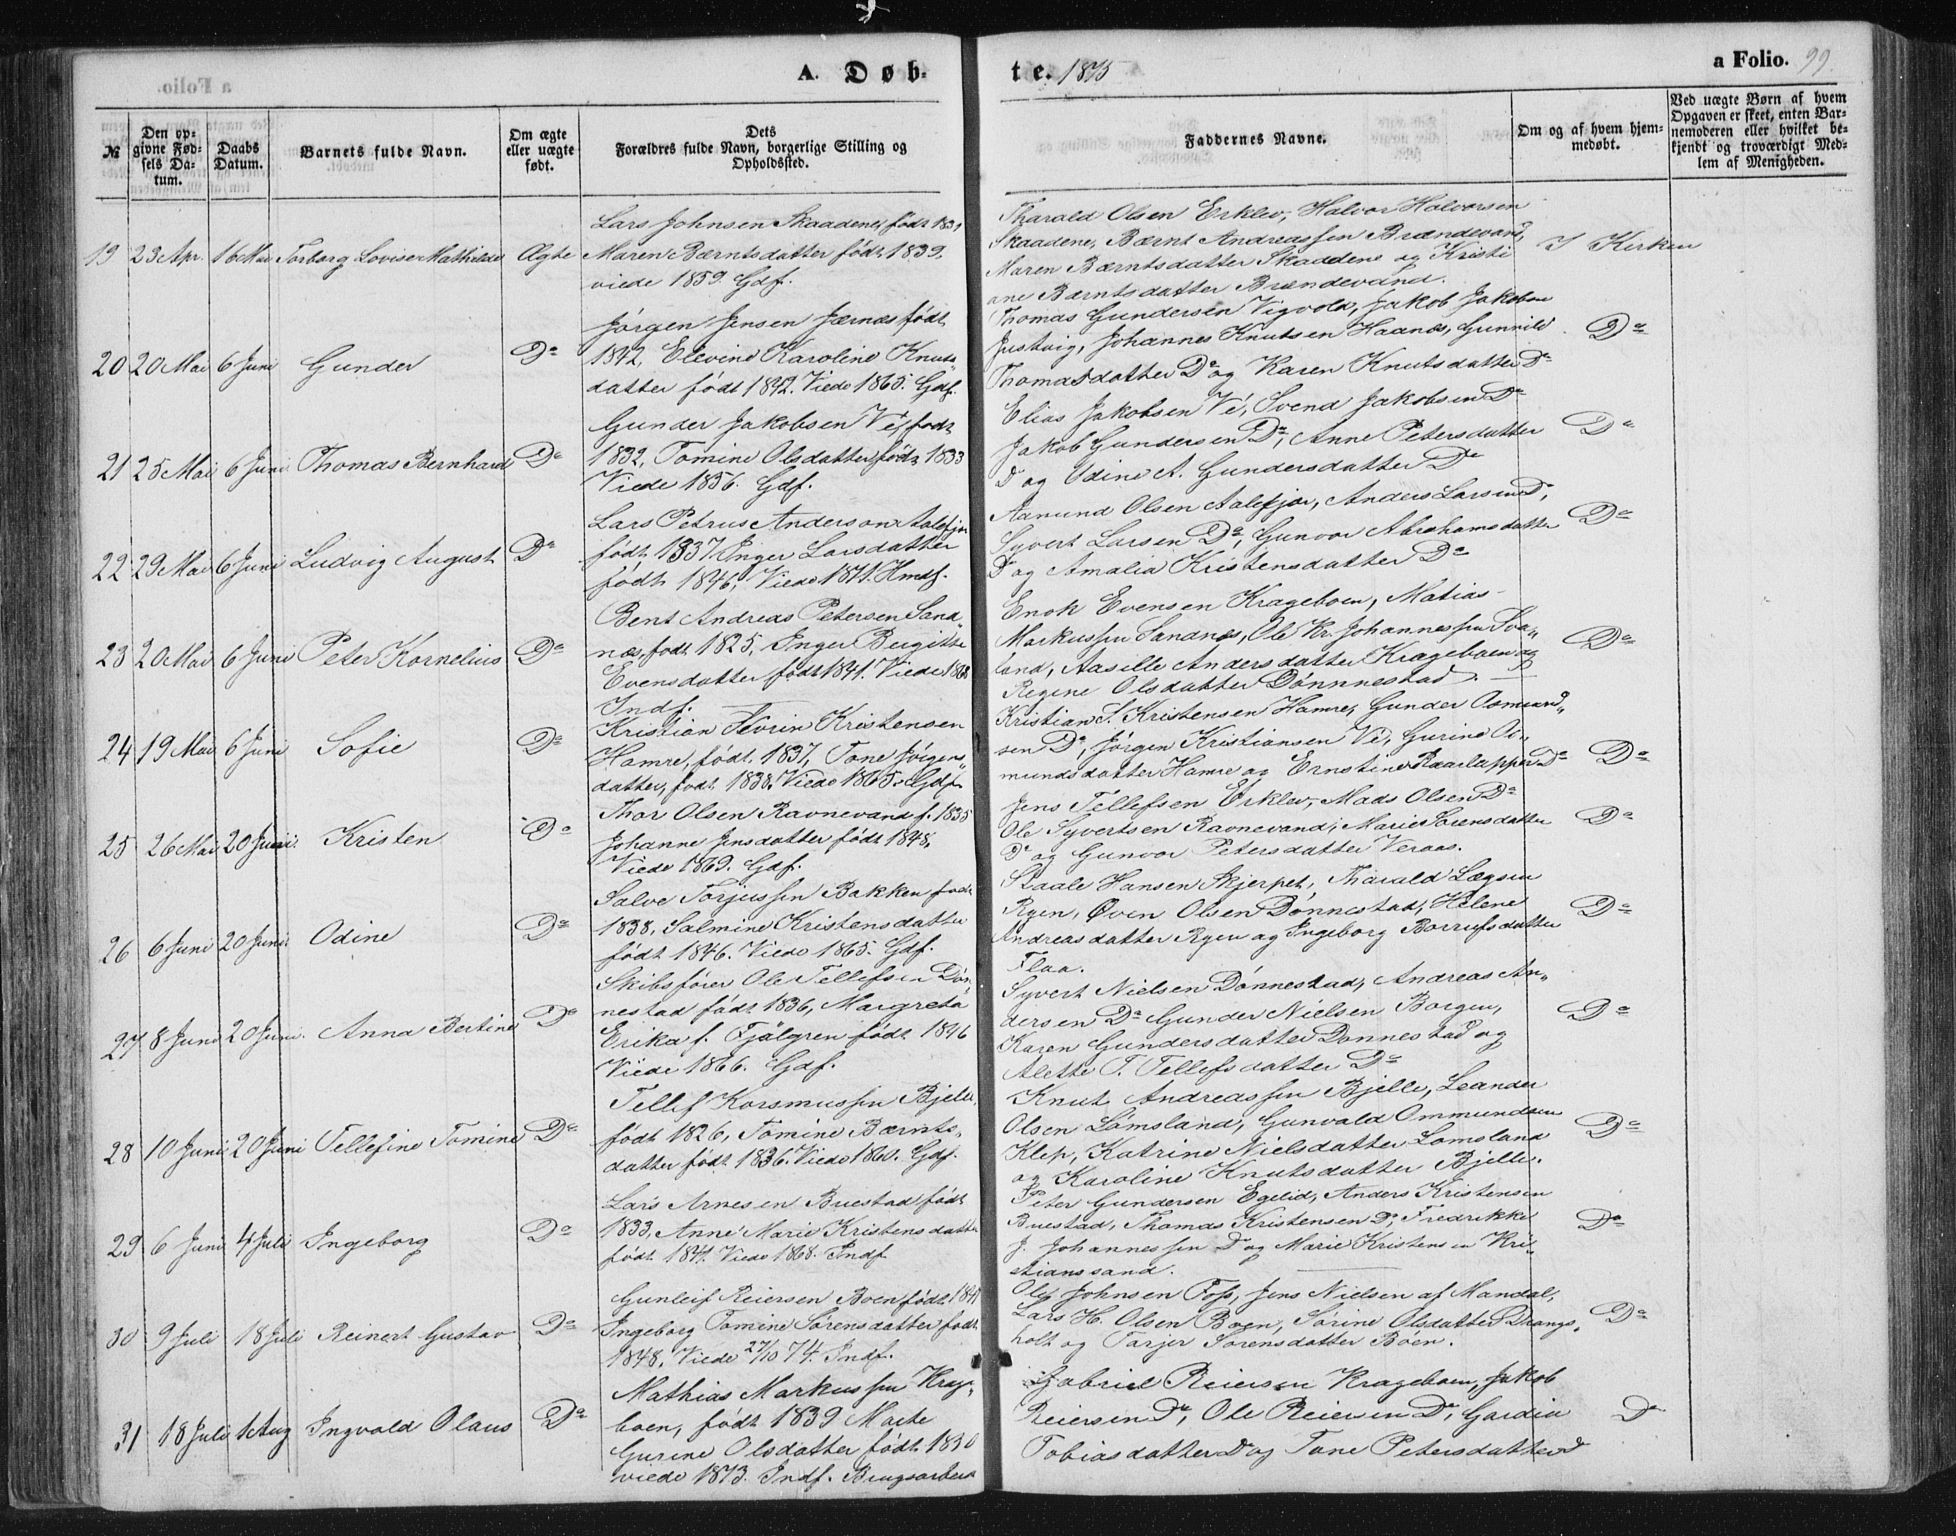 A. Døb-
te. 1875
a Folio. 99.
№
Den op-
givne Fød-
sels Da-
tum.
Daabs
Datum.
Barnets fulde Navn.
Om ægte
eller uægte
født.
Dets
Forældres fulde Navn, borgerlige Stilling og
Opholdssted.
Faddernes Navne.
Om og af hvem hjem-
medøbt.
Ved uægte Børn af hvem
Opgaven er skeet, enten Bar-
nemoderen eller hvilket be-
kjendt og troværdigt Med-
lem af Menigheden.
19 23 Apr. 16 Mai Torborg Lovise Mathilde Ægte
Lars Johnsen Skaadene, født 1831
Maren Bærntsdatter født 1839,
viede 1859. Gdf.
Tharald Olsen Erklev, Halvor Halvorsen
Skaadene, Bærnt Andreassen Brændevand,
Maren Bærntsdatter Skaadene og Kristi
ane Bærntsdatter Brændevand.
I Kirken
20 20 Mai 6 Juni Gunder Do
Jørgen Jensen Jærnæs født
1842, Elevine Karoline Knuts-
datter født 1842. Viede 1865. Gdf.
Thomas Gundersen Vigvold, Jakob Jakobsen
Justvig, Johannes Knutsen Haanes, Gunnild
Thomasdatter Do og Karen Knutsdatter Do
Do
21 25 Mai 6 Juni Thomas Bernhard Do
Gunder Jakobsen Vé, født
1832, Tomine Olsdatter født 1833
Viede 1856. Gdf.
Elias Jakobsen Vé, Svend Jakobsen Do
Jakob Gundersen Do, Anne Petersdatter
Do og Udine A. Gundersdatter Do
Do
22 29 Mai 6 Juni Ludvig August Do
Lars Petrus Anderson Aalefjær
født 1837 Inger Larsdatter
født 1846, Viede 1871. Hmdf.
Aanund Olsen Aalefjær, Anders Larsen Do,
Syvert Larsen Do, Gunvor Abrahamsdatter
Do og Amalia Kristensdatter Do
Do
23 20 Mai 6 Juni Peter Kornelius Do
Bent Andreas Petersen Sand-
næs, født 1825, Inger Birgitte
Evensdatter født 1841. Viede 1868
Indf.
Enok Evensen Krageboen, Matias
Markussen Sandnes, Ole Kr. Johannessen Sva-
land, Aasille Andersdatter Krageboen og
Regine Olsdatter Dønnnestad.
Do
24 19 Mai 6 Juni Sofie Do
Kristian Severin Kristensen
Hamre, født 1837, Tone Jørgens-
datter, født 1838. Viede 1865. Gdf.
Kristian S. Kristensen Hamre, Gunder Osmund-
sen Do, Jørgen Kristiansen Vé, Gurine Os-
mundsdatter Hamre og Ernstine Do
Do
25 26 Mai 20 Juni Kristen Do
Thor Olsen Ravnevand f. 1835
Johanne Jensdatter født 1848,
Viede 1869. Gdf.
Jens Tellefsen Erklev, Mads Olsen Do
Ole Syvertsen Ravnevand, Marie Sørensdatter
Do og Gunvor Petersdatter Veraas.
Do
26 6 Juni 20 Juni Odine Do
Salve Torjussen Bakken født
1838, Salmine Kristensdatter
født 1846. Viede 1865. Gdf.
Staale Hansen Skjerpet, Tharald Lægsen
Ryen, Øven Olsen Dønnestad, Helene
Andreasdatter Ryen og Ingeborg datter
Flaa.
Do
27 8 Juni 20 Juni. Anna Bertine Do
Skibsfører Ole Tellefsen Døn-
nestad født 1836, Margreta
Erika f. Fjälgren født 1846
Viede 1866. Gdf.
Syvert Nielsen Dønnestad, Andreas An-
dersen Do Gunder Nielsen Borgen,
Karen Gundersdatter Dønnestad og
Alette T. Tellefsdatter Do
Do
28 10 Juni 20 Juni Tellefine Tomine Do
Tellef Korsmussen Bjelle,
født 1826, Tomine Bærnts-
datter født 1836. Viede 1860. Gdf.
Knut Andreassen Bjelle, Leander
Olsen Lømsland, Gunvald Ommundsen
Klep, Katrine Nielsdatter Lømsland
og Karoline Knutsdatter Bjelle.
Do
29 6 Juni 4 Juli Ingeborg Do
Lars Arnesen Buestad født
1833, Anne Marie Kristensdatter
født 1841. Viede 1868. Indf.
Peter Gundersen Egelid, Anders Kristensen
Buestad, Thomas Kristensen Do, Fredrikke
J. Johannessen Do og Marie Kristensen Kri-
stianssand.
Do
30 9 Juli 18 Juli Reinert Gustav Do
Gunleif Reiersen Boen født 1848
Ingeborg Tomine Sørensdatter født
1848. Viede 27/10 74. Indf.
Ole Johnsen Foss, Jens Nielsen af Mandal,
Lars H. Olsen Boen, Sørine Olsdatter Drangs-
holt og Tarjer Sørensdatter Boen.
Do
31 18 Juli 1 Aug Ingvald Olaus Do
Mathias Markussen Krage-
boen, født 1839 Marte
Gurine Olsdatter født 1830
viede 1873. Indf. Brugsarbeid
Gabriel Reiersen Krageboen, Jakob
Reiersen Do, Ole Reiersen Do, Gardia
Tobiasdatter Do og Tone Petersdatter Do
Do